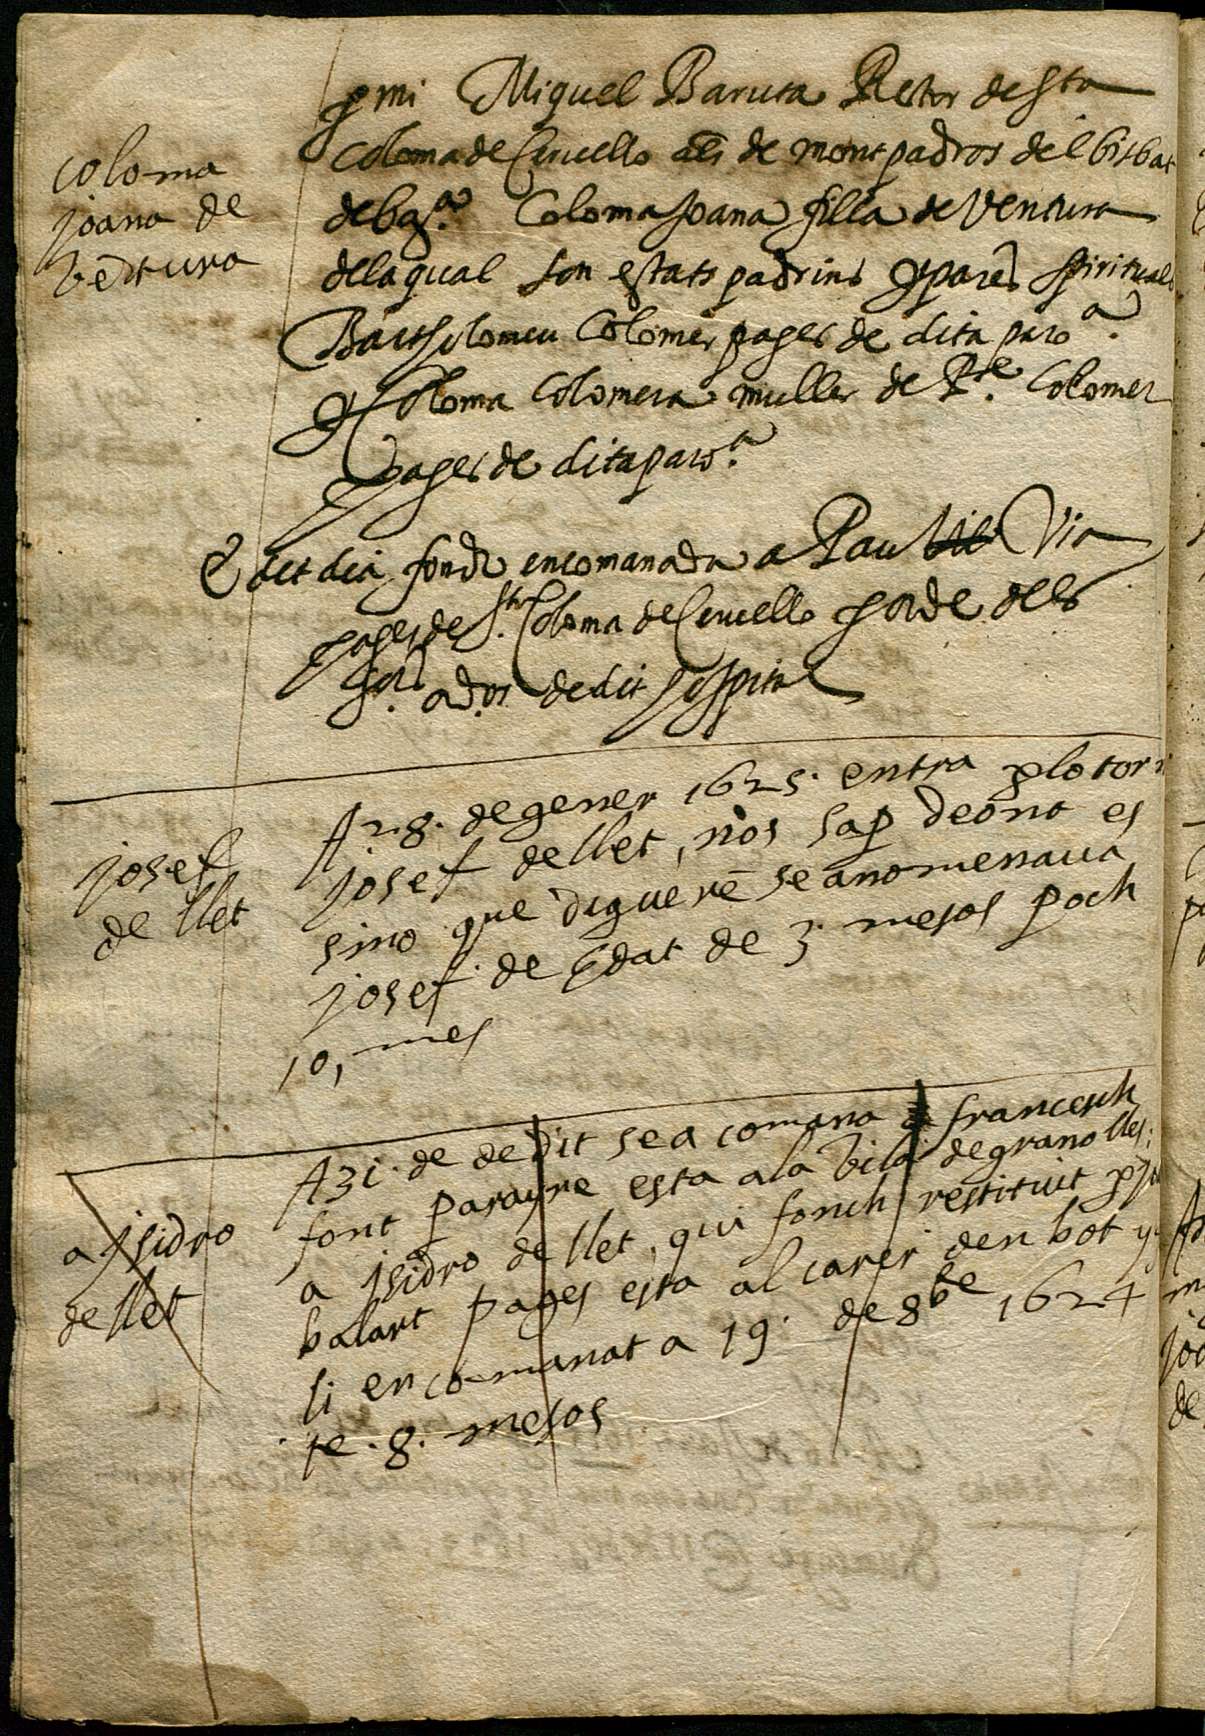 coloma
joana de
ventura
p mi Miquel Baruta Rector de Sta
Coloma de Cervello aĺs de mont padros del bisbat
de bar.ª Coloma Joana filla de Ventura
dela qual son estats padrins y pares spirituals
Barthelomeu Colomer pages de dita paroª.
y Coloma Colomera muller de Bte. Colomer
pages de dita paro.ª
E dit dia fonch encomanada a Pau Via
pages de Sta. Coloma de Cervello p orde dels
Srs. ados. de dit hospital
josef
de llet
A 28. de gener 1625. entra p lo torn
josef de llet, nos sap de ont es
sino que digueré se anomenava
josef. de edat de 3. mesos poch
10, mes
a jsidro
de llet
A 31. de dedit se a comana a francesch
font parayre esta a la vila de granolles:
a jsidro de llet, qui fonch restituit p
balart pages esta al carer den bot y
li encomanat a 19. de 8bre 1624
te. 8. mesos